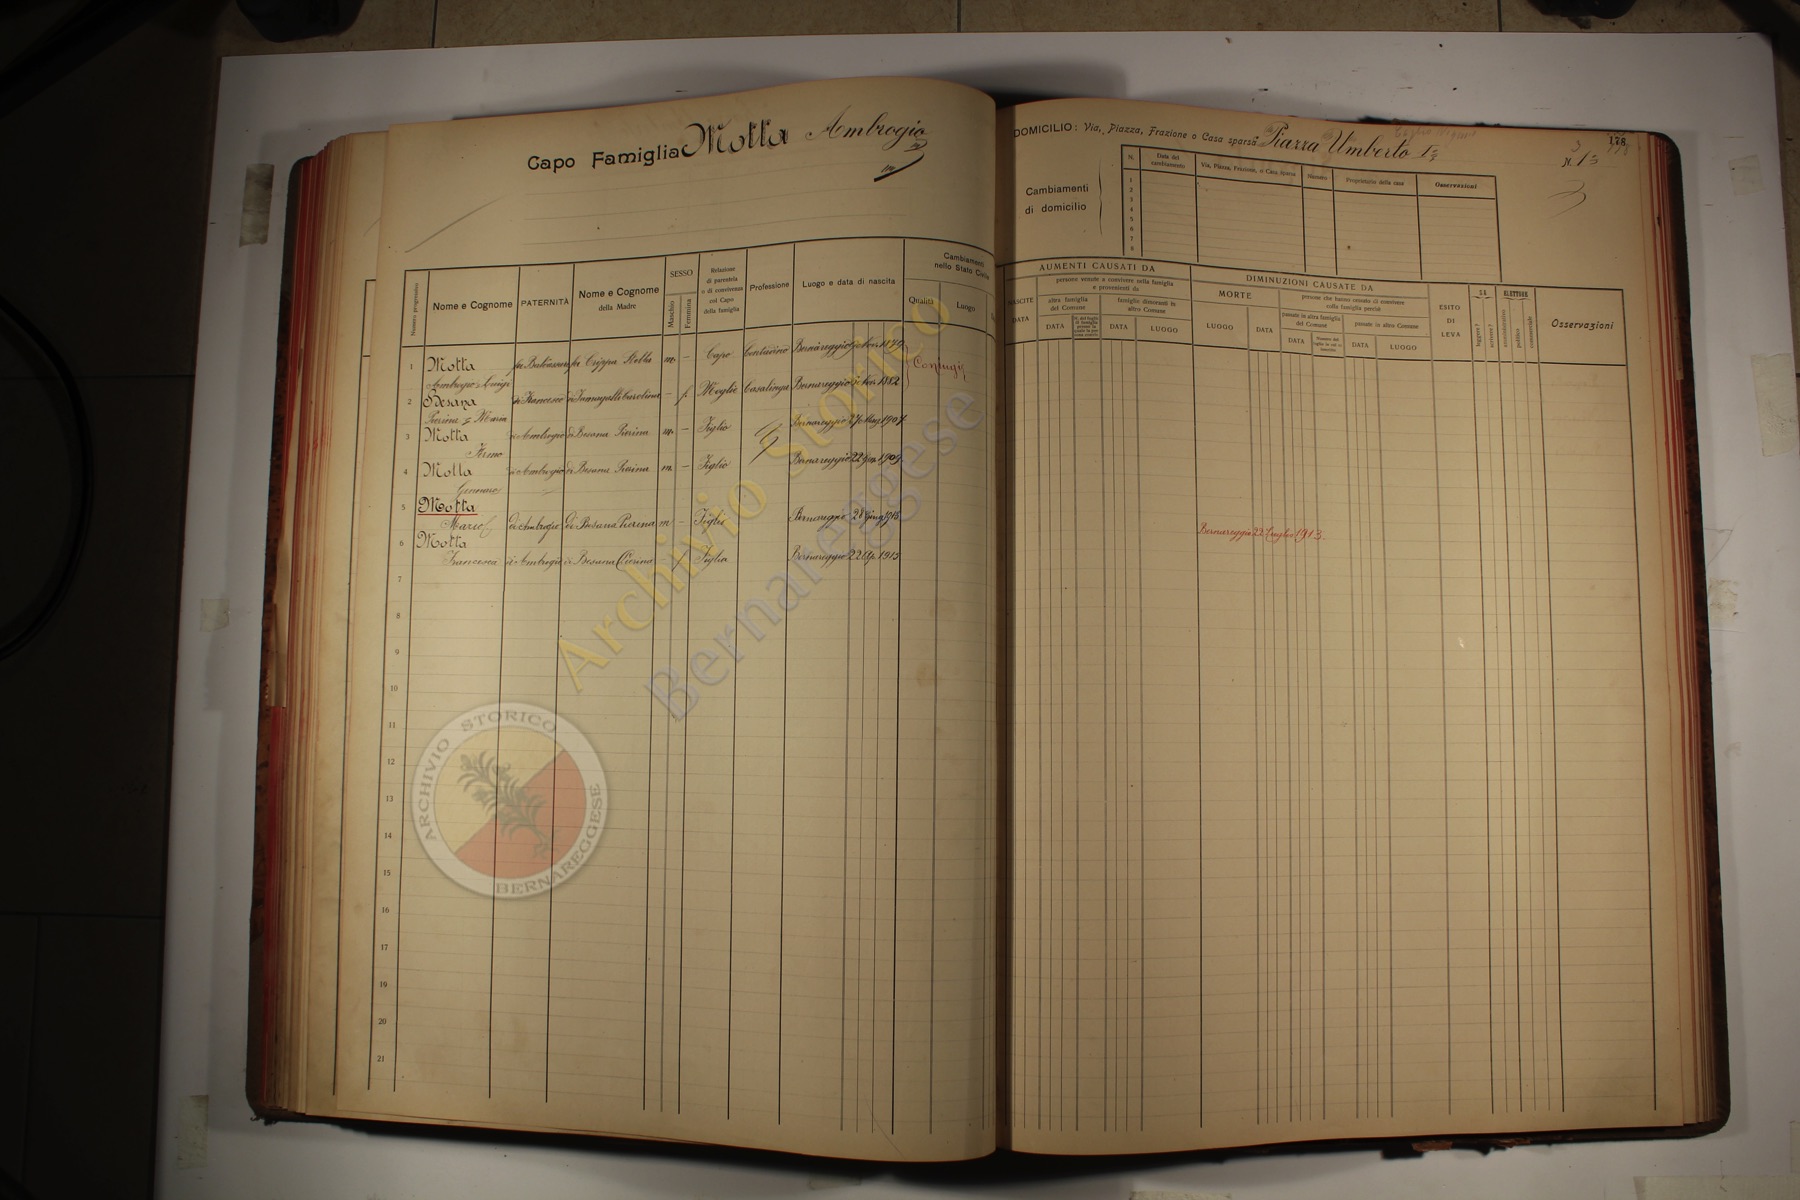 Capo Famiglia Motta Ambrogio
DOMICILIO: Via, Piazza, Frazione o Casa sparsa Piazza Umberto I°
N. 13
178
Cambiamenti di domicilio
N. Data del cambiamento Via, Piazza, Frazione, o Casa sparsa Numero Proprietario della casa Osservazioni
1
2
3
4
5
6
7
8
Numero progressivo
Nome e Cognome
PATERNITÀ
Nome e Cognome della Madre
SESSO
Maschio
Femmina
Relazione di parentela o di convivenza col Capo della famiglia
Professione
Luogo e data di nascita
Cambiamenti nello Stato Civile
Qualità
Luogo
AUMENTI CAUSATI DA
NASCITE
DATA
persone venute a convivere nella famiglia e provenienti da
altra famiglia del Comune
DATA
famiglie dimoranti in altro Comune
DATA LUOGO
DIMINUZIONI CAUSATE DA
MORTE
LUOGO DATA
persone che hanno cessato di convivere colla famiglia perchè
passate in altra famiglia del Comune
DATA
passate in altro Comune
DATA LUOGO
ESITO DI LEVA
SA
leggere?
scrivere?
ELETTORE
amministrativo
politico
commerciale
Osservazioni
1 Motta Ambrogio Luigi fu Baldassare fu Crippa m. – Capo Contadino Bernareggio 1879 Coniugi
2 Besana Pierina Maria di Francesco di Fumagalli Carolina – f. Moglie Casalinga Bernareggio 1882
3 Motta Fermo di Ambrogio di Besana Pierina m. – Figlio Bernareggio 27 Mag. 1907
4 Motta Gennaro di Ambrogio di Besana Pierina m. – Figlio Bernareggio 22 1909
5 Motta Mario di Ambrogio di Besana Pierina m – Figlio Bernareggio 28 Giug. Bernareggio 22 Luglio 1913
6 Motta Francesca di Ambrogio di Besana Pierina f Figlia Bernareggio 22 1913
7
8
9
10
11
12
13
14
15
16
17
18
19
20
21
Archivio Storico
Bernareggese
ARCHIVIO STORICO
BERNAREGGESE